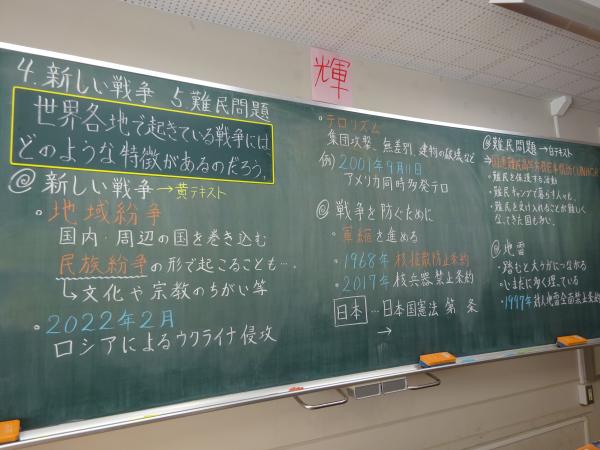 4.新しい戦争 5.難民問題
世界各地で起きている戦争には
どのような特徴があるのだろう。
@新しい戦争→黄テキスト
。地域紛争
国内・周辺の国を巻き込む
民族紛争の形で起こることも…。
↳文化や宗教のちがい等
。2022年2月
ロシアによるウクライナ侵攻
輝
・テロリズム
集団攻撃、無差別、建物の破壊など
例)2001年9月11日
アメリカ同時多発テロ
@戦争を防ぐために
・軍縮を進める
・1968年 核拡散防止条約
・2017年 核兵器禁止条約
日本…日本国憲法 第 条
→
@難民問題→白テキスト
・難民を保護する活動
・難民キャンプで暮らす人々も
・難民を受け入れることが難しく
なってきた国も多い。
@地雷
・踏むと大ケガにつながる
・いまだに多く埋っている
・1997年 対人地雷全面禁止条約